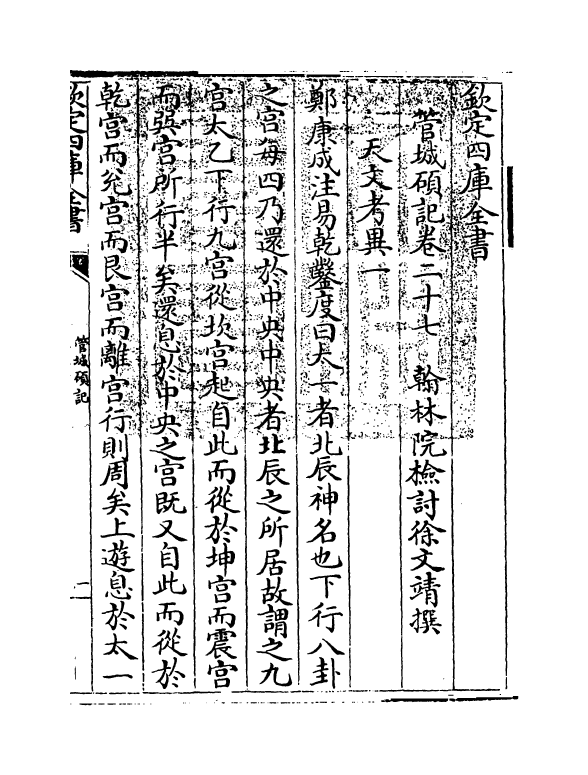 欽定四庫全書
管城碩記卷二十七　翰林院檢討徐文靖撰
天文考異一
鄭康成注易乾鑿度曰太一者北辰神名也下行八卦
之宮每四乃還於中央中央者北辰之所居故謂之九
宮太乙下行九宮從坎宮起自此而從於坤宮而震宮
而巽宮所行半矣還息於中央之宮既又自此而從於
乾宮而兊宮而艮宮而離宮行則周矣上遊息於太一
欽定四庫全書
管城碩記